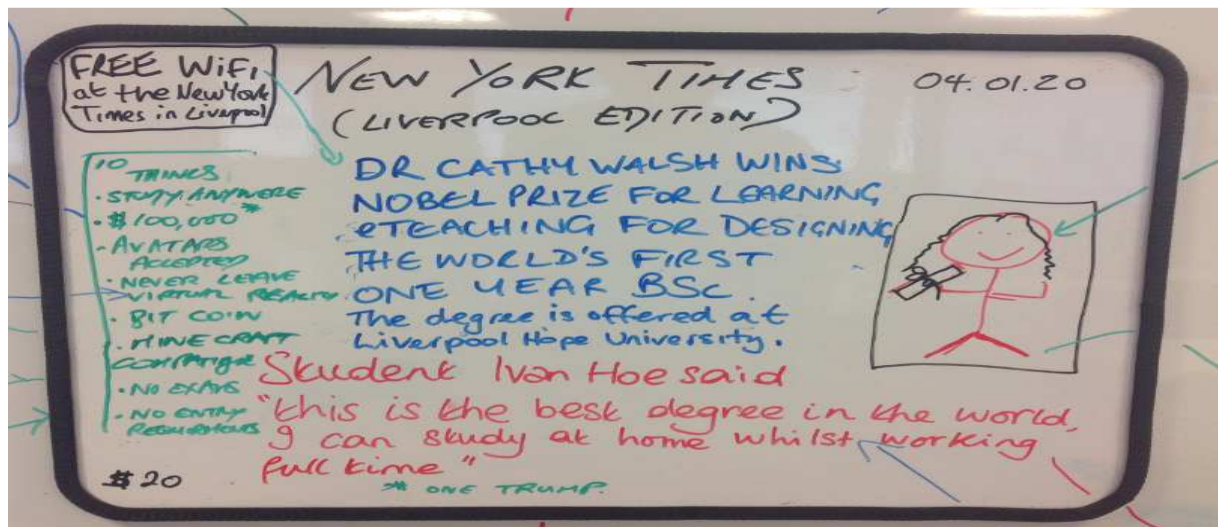 FREE WiFi
at the New York
Times in Liverpool
NEW YORK TIMES
(LIVERPOOL EDITION)
04.01.20
10 THINGS
• STUDY ANYWERE
• $100,000*
• AVATARS
ACCEPTED
• NEVER LEAVE
VIRTUAL REALITY
• BIT COIN
• MINECRAFT
COMPATIBLE
• NO EXAMS
• NO ENTRY
REQUIREMENTS
DR CATHY WALSH WINS
NOBEL PRIZE FOR LEARNING
eTEACHING FOR DESIGNING
THE WORLD'S FIRST
ONE YEAR BSc.
The degree is offered at
Liverpool Hope University.
Student Ivan Hoe said
"this is the best degree in the world,
I can study at home whilst working
full time"
* ONE TRUMP.
$20